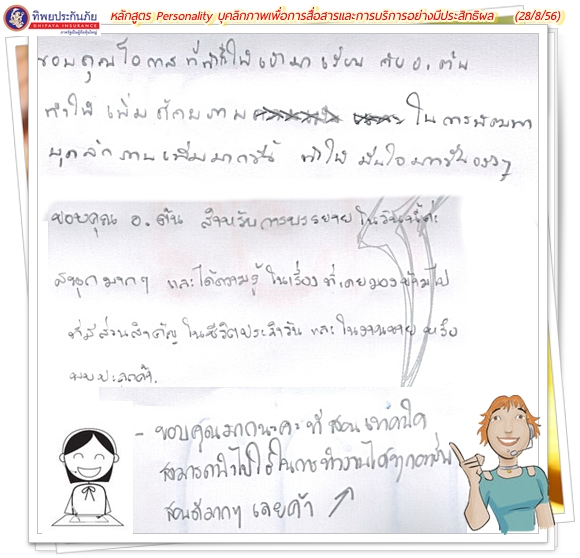 ทิพยประกันภัย
DHIPAYA INSURANCE
หลักสูตร Personality บุคลิกภาพเพื่อการสื่อสารและการบริการอย่างมีประสิทธิผล (28/8/56)
ขอบคุณโอกาสที่ทำให้เข้ามาเรียน กับ อ. ต้น
ทำให้ เพิ่มศักยภาพ ในการพัฒนา
บุคลิกภาพเพิ่มมากขึ้น ทำให้ มั่นใจมากขึ้นจริงๆ
ขอบคุณ อ. ต้น สำหรับการบรรยายในวันนี้ค่ะ
สนุกมากๆ และได้ความรู้ ในเรื่อง ที่เคยมองข้ามไป
ที่มีส่วนสำคัญ ในชีวิตประจำวัน และ ในงานขาย หรือ
พบปะลูกค้า.
- ขอบคุณมากนะคะ ที่สอนเทคนิค
สามารถนำไปใช้ในการทำงานได้ทุกอาชีพ
สอนดีมากๆ เลยค่า